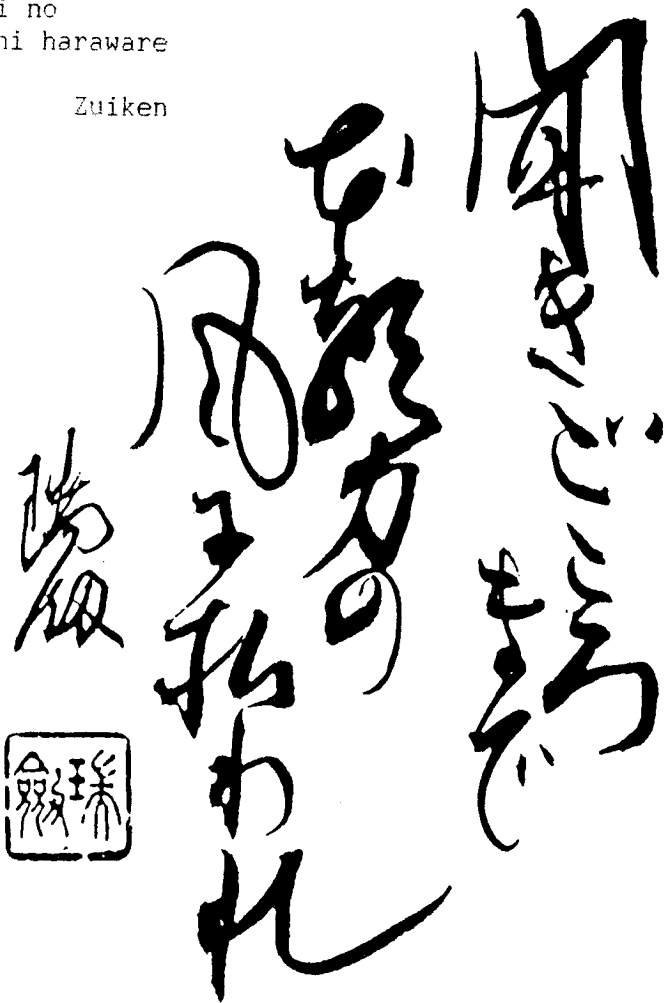 i no
ni haraware
Zuiken
聞きどころ
まで
本願力の
風に払われ
瑞剱
瑞劔